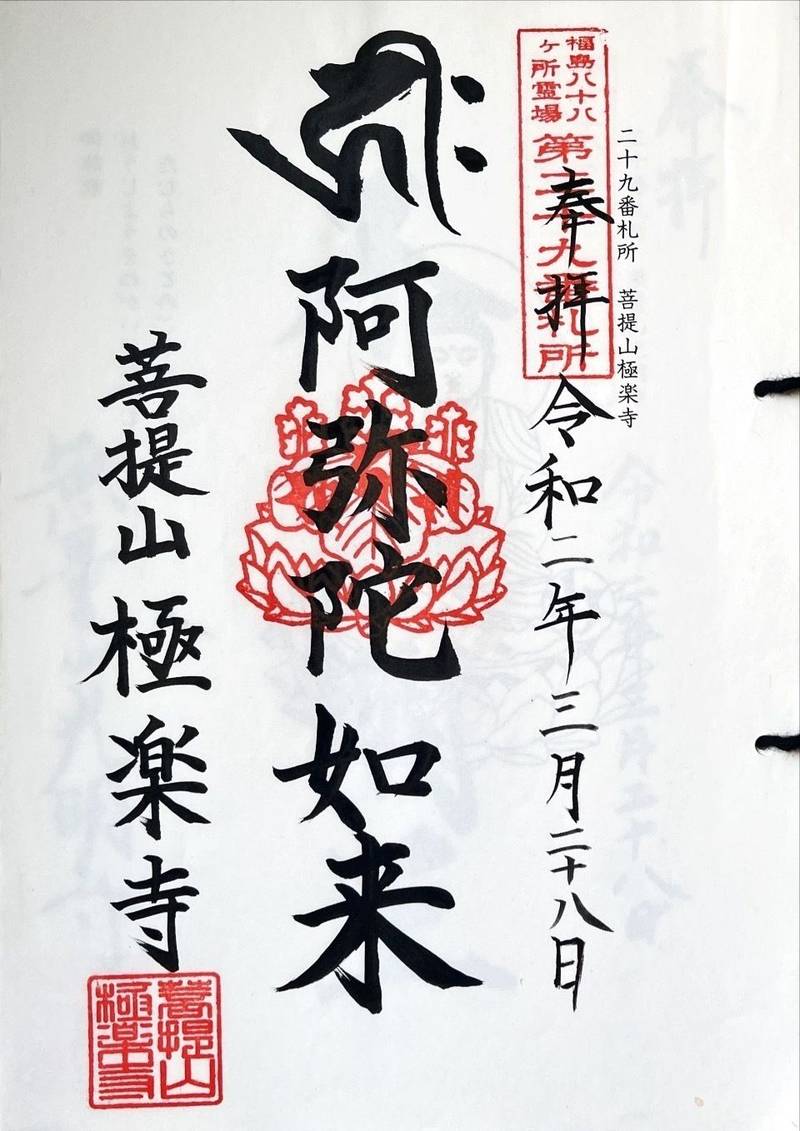 二十九番札所 菩提山極楽寺
福島八十八
ヶ所霊場
第二十九番札所
奉拝 令和二年三月二十八日
阿弥陀如来
菩提山 極楽寺
菩提山
極楽寺